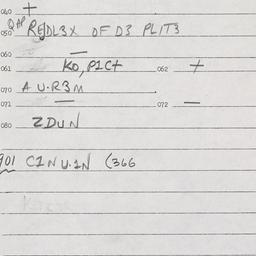 060 +
QAP
050 REJDL3X OF D3 PLIT3
060 —
061 KO, PICT 062 +
070 A U.R3M
071 — 072 —
080 ZDUN
901 CINU.IN (366